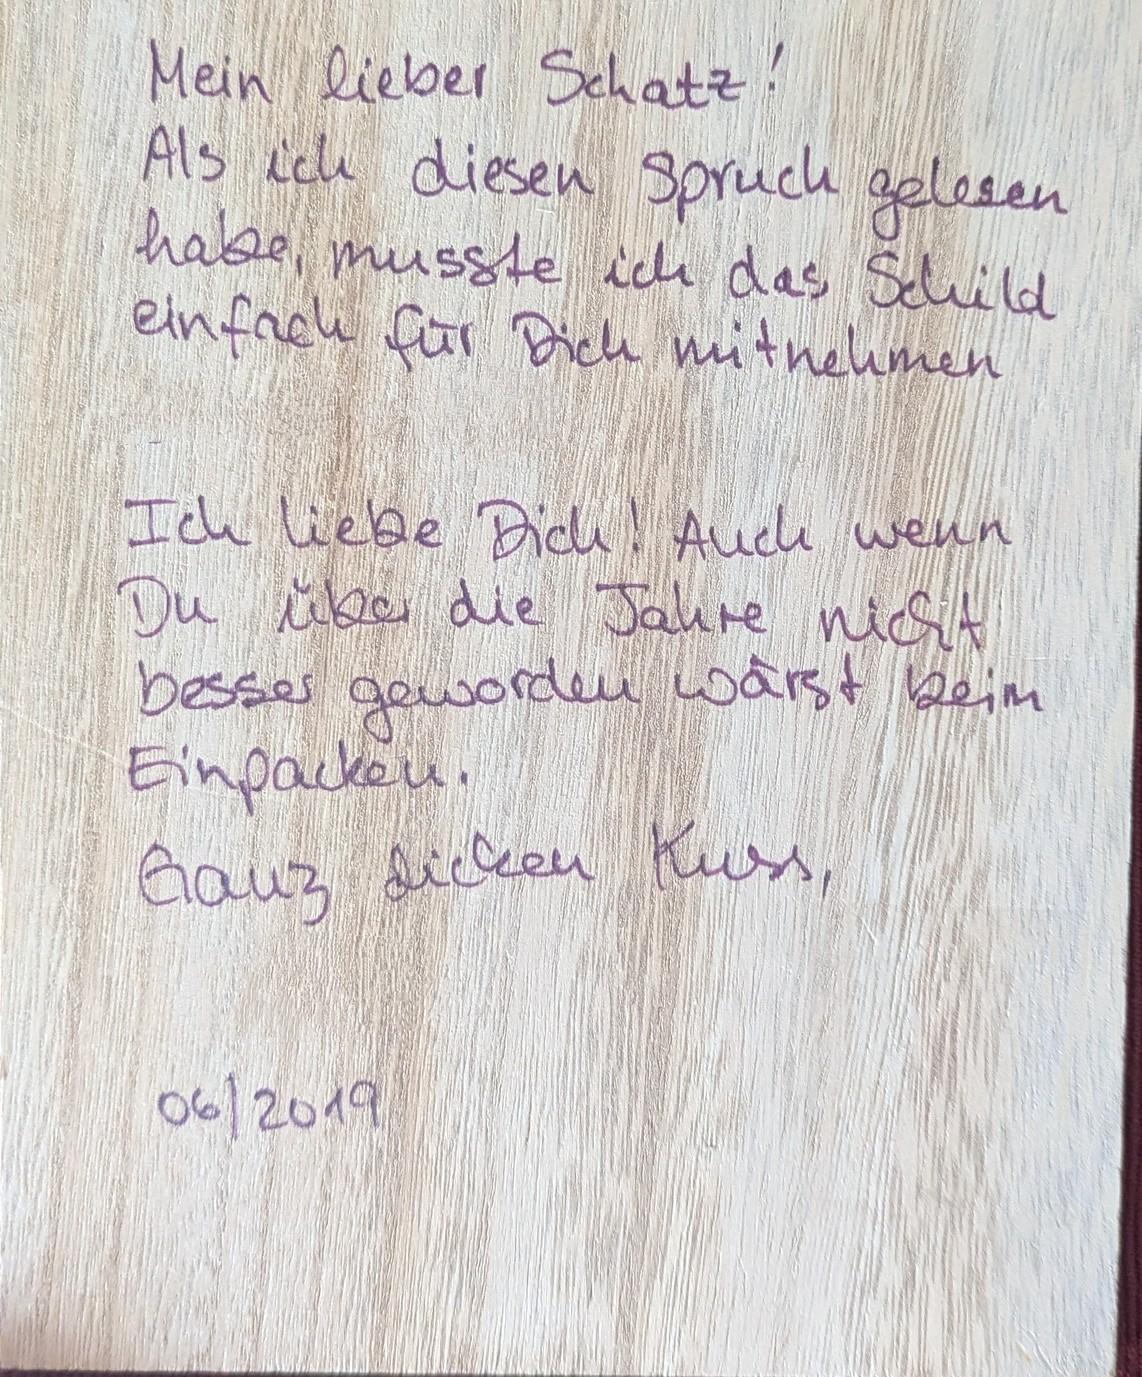 Mein lieber Schatz!
Als ich diesen Spruch gelesen
habe, musste ich das Schild
einfach für Dich mitnehmen
Ich liebe Dich! Auch wenn
Du über die Jahre nicht
besser geworden wärst beim
Einpacken.
Ganz dicken Kuss,
06/2019